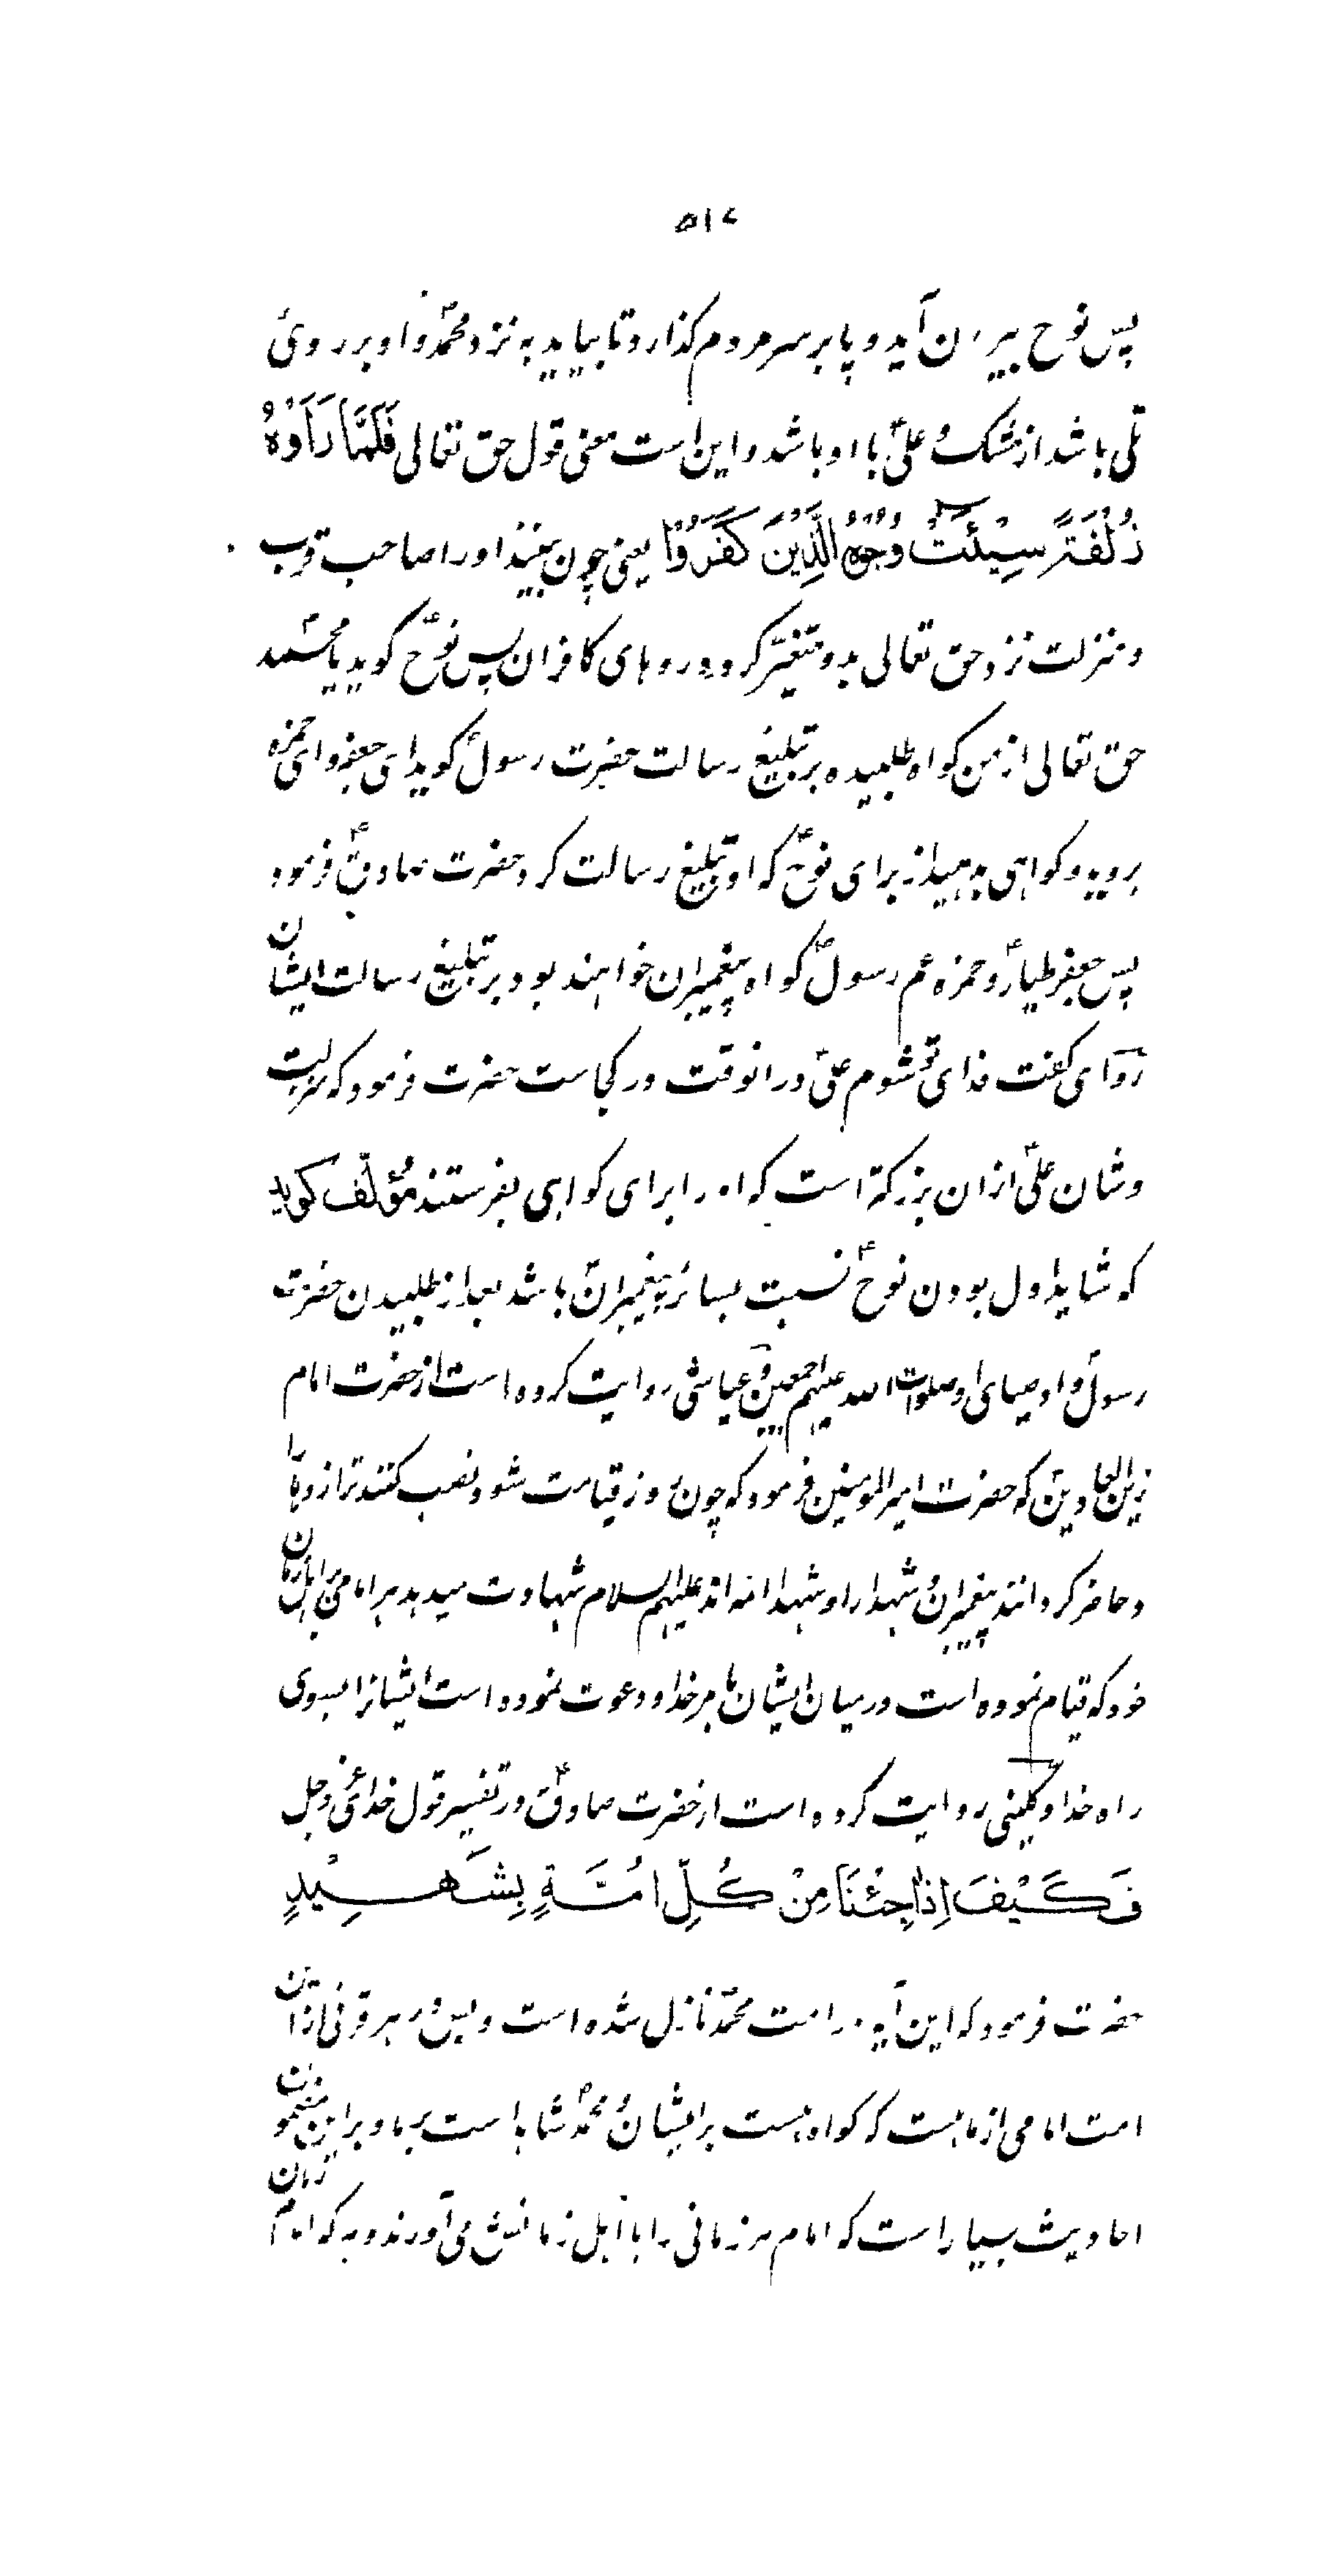 ۵۱۷
پس نوح بیرون آید و پا بر سر مردم گذارد تا بیاید به نزد محمدؐ و او بر روی
تلی باشد از مشک و علیؑ با او باشد و این است معنی قول حق تعالی فَلَمَّا رَاَوْهُ
زُلْفَةً سِیْئَتْ وُجُوْهُ الَّذِیْنَ کَفَرُوْا یعنی چون ببینند او را صاحب قرب
و منزلت نزد حق تعالی بد و متغیّر گردد روهای کافران پس نوحؑ گوید یا محمّد
حق تعالی از من گواه طلبیده بر تبلیغ رسالت حضرت رسولؐ گوید ای جعفر و ای حمزه
بروید و گواهی بدهید از برای نوحؑ که او تبلیغ رسالت کرد حضرت صادقؑ فرمود
پس جعفر طیار و حمزه عم رسولؐ گواه پیغمبران خواهند بود بر تبلیغ رسالت ایشان
راوی گفت فدای تو شوم علیؑ در انوقت در کجاست حضرت فرمود که منزلت
و شان علیؑ از ان بزرگتر است که او را برای گواهی بفرستند مؤلّف گوید
که شاید اول بودن نوحؑ نسبت بسائر پیغمبران باشد بعد از طلبیدن حضرت
رسولؐ و اوصیای او صلوات الله علیهم اجمعین و عیاشی روایت کرده است از حضرت امام
زین العابدینؑ که حضرت امیر المومنین فرمود که چون روز قیامت شود نصب کنند ترازوها را
و حاضر گردانند پیغمبران و شهدا را و شهدا ائمه اند علیهم السلام شهادت میدهد هر امامی بر اهل زمان
خود که قیام نموده است در میان ایشان بامر خدا و دعوت نموده است ایشانرا بسوی
راه خدا و کلینی روایت کرده است از حضرت صادقؑ در تفسیر قول خدای عز و جل
فَکَیْفَ اِذَا جِئْنَا مِنْ کُلِّ اُمَّةٍ بِشَهِیْدٍ
حضرت فرمود که این آیه در امت محمدؐ نازل شده است و بس در هر قرنی ازین
امت امامی از ما هست که گواه هست بر ایشان و محمدؐ شاهد است بر ما و برین مضمون
احادیث بسیار است که امام هر زمانی را با اهل زمانش می آورند و به که امام زمان